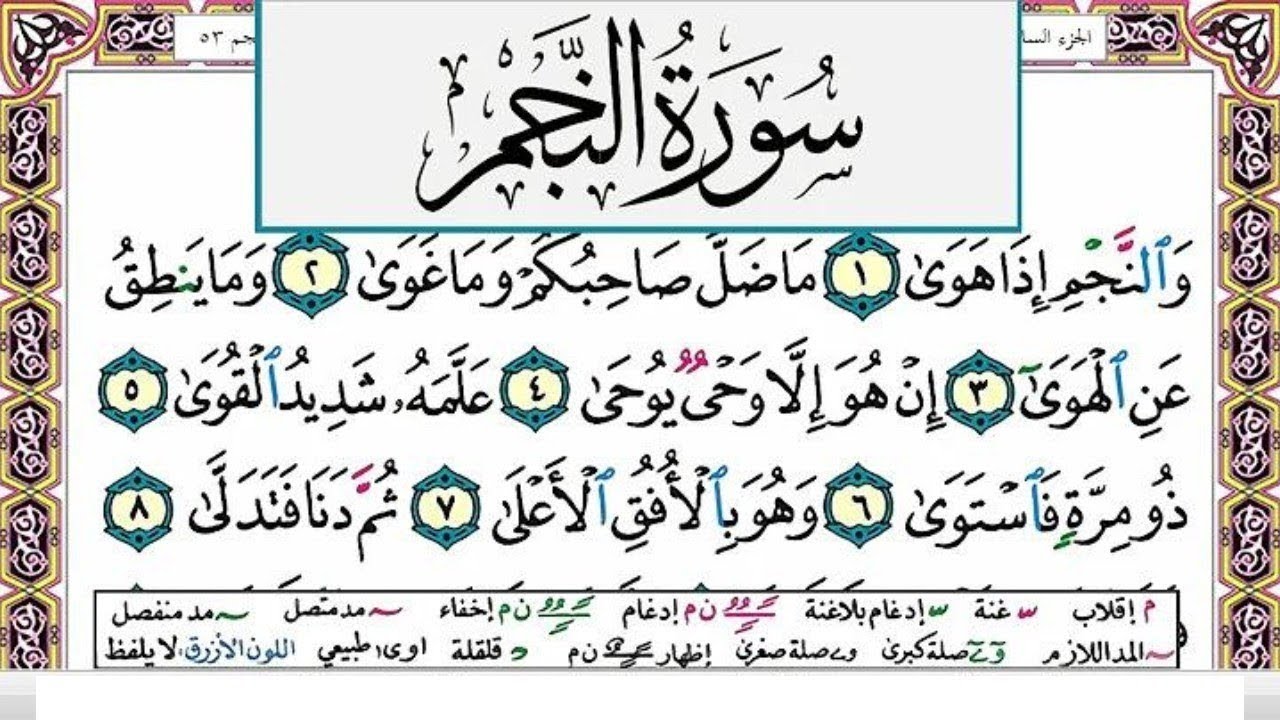 الجزء السا
جم ٥٣
سُورَةُ النَّجْمِ
وَٱلنَّجْمِ إِذَا هَوَىٰ ١ مَا ضَلَّ صَاحِبُكُمْ وَمَا غَوَىٰ ٢ وَمَا يَنطِقُ
عَنِ ٱلْهَوَىٰٓ ٣ إِنْ هُوَ إِلَّا وَحْىٌ يُوحَىٰ ٤ عَلَّمَهُۥ شَدِيدُ ٱلْقُوَىٰ ٥
ذُو مِرَّةٍ فَٱسْتَوَىٰ ٦ وَهُوَ بِٱلْأُفُقِ ٱلْأَعْلَىٰ ٧ ثُمَّ دَنَا فَتَدَلَّىٰ ٨
م إقلاب غنة إدغام بلاغنة ن م إدغام ن م إخفاء مد متصل مد منفصل
المد اللازم صلة كبرى صلة صغرى إظهار ن م د قلقلة اوى ا طبيعي اللون الأزرق: لا يلفظ